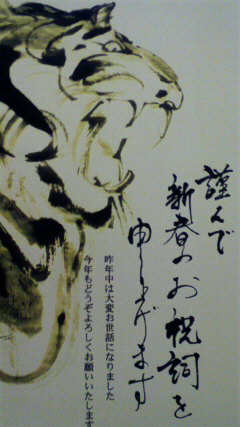 謹んで
新春のお祝詞を
申し上げます
昨年中は大変お世話になりました
今年もどうぞよろしくお願いいたします